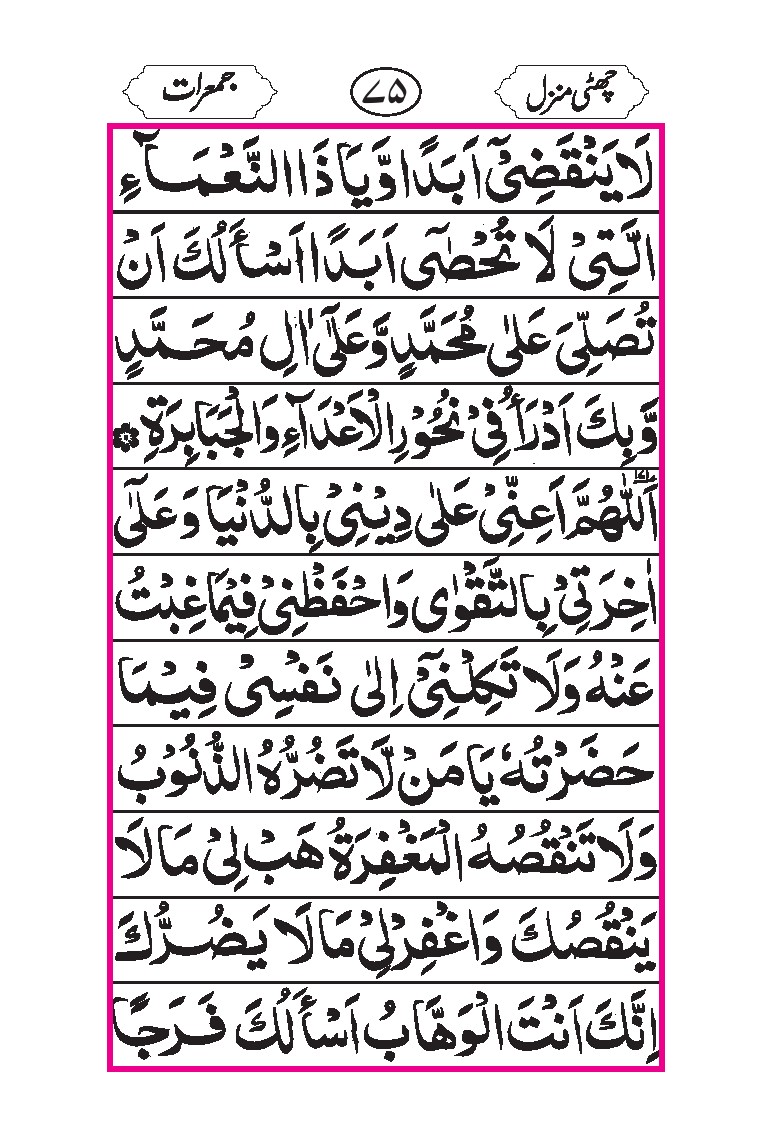 چھٹی منزل ۷۵ جمعرات
لَا يَنْقَضِيْٓ اَبَدًا وَّيَا ذَا النَّعْمَآءِ
الَّتِيْ لَا تُحْصٰٓى اَبَدًا اَسْأَلُكَ اَنْ
تُصَلِّيَ عَلٰى مُحَمَّدٍ وَّعَلٰٓى اٰلِ مُحَمَّدٍ
وَّبِكَ اَدْرَأُ فِيْ نُحُوْرِ الْاَعْدَآءِ وَالْجَبَابِرَةِ
اَللّٰهُمَّ اَعِنِّيْ عَلٰى دِيْنِيْ بِالدُّنْيَا وَعَلٰٓى
اٰخِرَتِيْ بِالتَّقْوٰى وَاحْفَظْنِيْ فِيْمَا غِبْتُ
عَنْهُ وَلَا تَكِلْنِيْٓ اِلٰى نَفْسِيْ فِيْمَا
حَضَرْتُهٗ يَا مَنْ لَّا تَضُرُّهُ الذُّنُوْبُ
وَلَا تَنْقُصُهُ الْمَغْفِرَةُ هَبْ لِيْ مَا لَا
يَنْقُصُكَ وَاغْفِرْ لِيْ مَا لَا يَضُرُّكَ
اِنَّكَ اَنْتَ الْوَهَّابُ اَسْأَلُكَ فَرَجًا